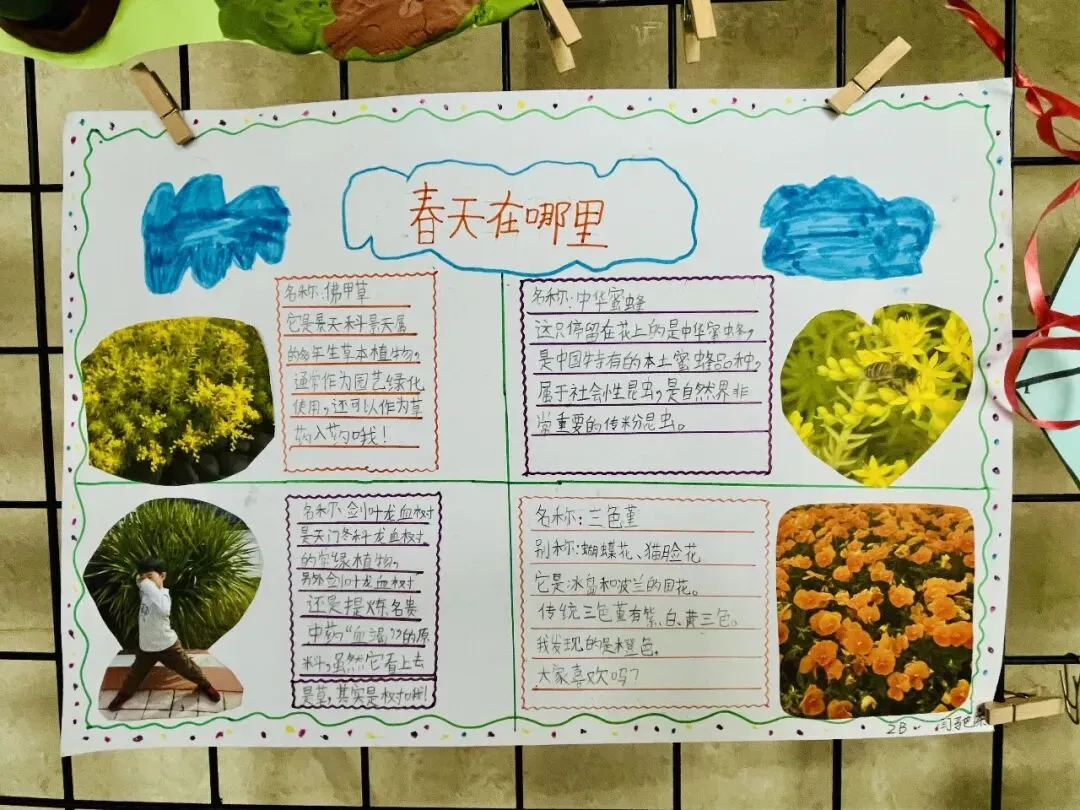 春天在哪里
名称:佛甲草
它是景天科景天属
的多年生草本植物,
通常作为园艺绿化
使用,还可以作为草
药入药哦!
名称:中华蜜蜂
这只停留在花上的是中华蜜蜂,
是中国特有的本土蜜蜂品种,
属于社会性昆虫,是自然界非
常重要的传粉昆虫。
名称:剑叶龙血树
是天门冬科龙血树
的常绿植物,
另外剑叶龙血树
还是提炼名贵
中药“血竭”的原
料,虽然它看上去
是草,其实是树哦!
名称:三色堇
别称:蝴蝶花、猫脸花
它是冰岛和波兰的国花。
传统三色堇有紫、白、黄三色。
我发现的是橙色。
大家喜欢吗?
2B 闫